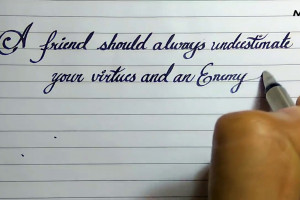 A friend should always undestimate
your virtues and an Enemy